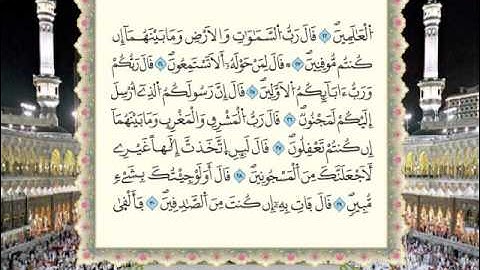 اَ۬لْعَٰلَمِينَۖ ٢٢ قَالَ رَبُّ اُ۬لسَّمَٰوَٰتِ وَالَارْضِ وَمَا بَيْنَهُمَآ إِن
كُنتُم مُّوقِنِينَۖ ٢٣ قَالَ لِمَنْ حَوْلَهُۥٓ أَلَا تَسْتَمِعُونَۖ ٢٤ قَالَ رَبُّكُمْ
وَرَبُّ ءَابَآئِكُمُ اُ۬لَاوَّلِينَۖ ٢٥ قَالَ إِنَّ رَسُولَكُمُ اُ۬لذِےٓ أُرْسِلَ
إِلَيْكُمْ لَمَجْنُونٞۖ ٢٦ قَالَ رَبُّ اُ۬لْمَشْرِقِ وَالْمَغْرِبِ وَمَا بَيْنَهُمَآ
إِن كُنتُمْ تَعْقِلُونَۖ ٢٧ قَالَ لَئِنِ اِ۪تَّخَذتَّ إِلَٰهاً غَيْرِے
لَأَجْعَلَنَّكَ مِنَ اَ۬لْمَسْجُونِينَۖ ٢٨ قَالَ أَوَلَوْ جِئْتُكَ بِشَےْءٖ
مُّبِينٖۖ ٢٩ قَالَ فَاتِ بِهِۦٓ إِن كُنتَ مِنَ اَ۬لصَّٰدِقِينَۖ ٣٠ فَأَلْق۪يٰ